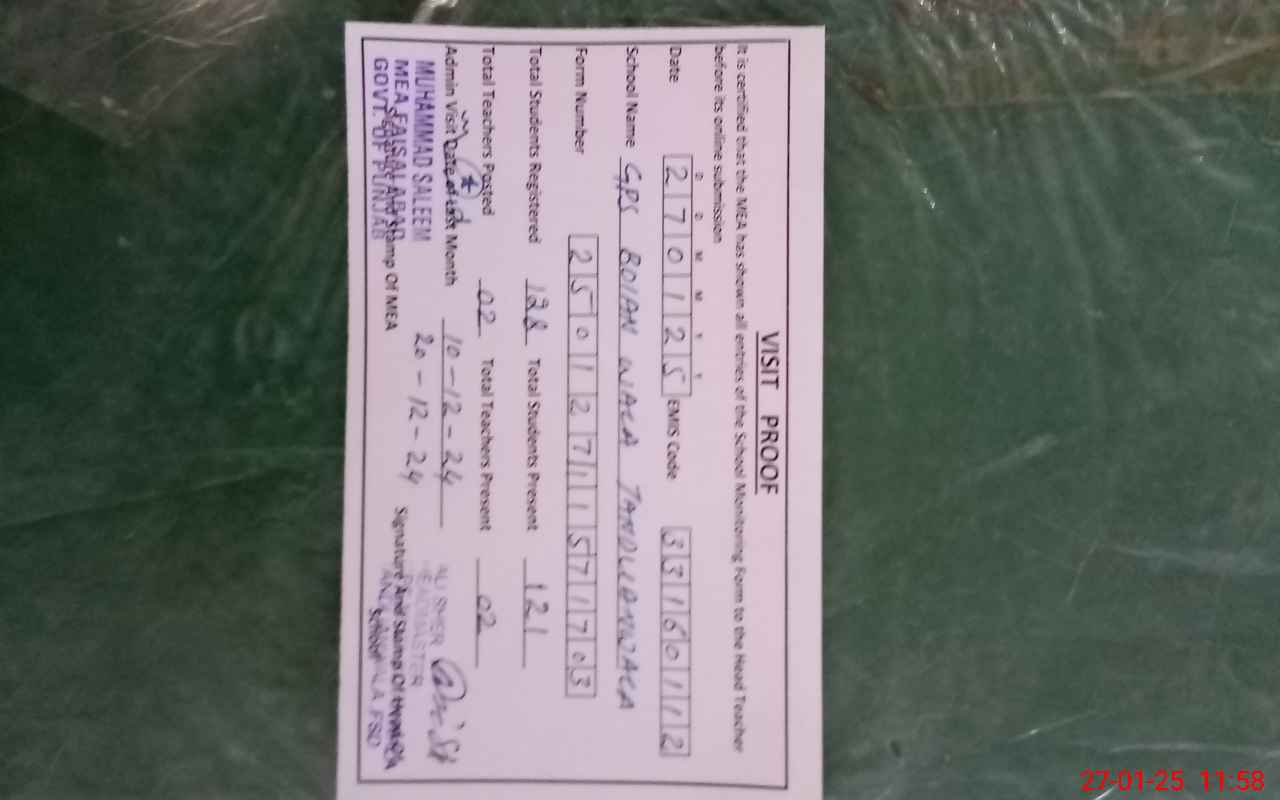 VISIT PROOF
It is certified that the MEA has shown all entries of the School Monitoring Form to the Head Teacher
before its online submission
D D M M Y Y
Date 270125 EMIS Code 33160112
School Name GPS BOIAN WALA TANDLIANWALA
Form Number 2501271157 1703
Total Students Registered 128 Total Students Present 121
Total Teachers Posted 02 Total Teachers Present 02
Admin Visit Date of Last Month 10-12-24
20-12-24
MUHAMMAD SALEEM
MEA FAISALABAD
GOVT. OF PUNJAB
Signature And Stamp Of MEA
ALI SHER
HEADMASTER
Signature And Stamp Of
School
27-01-25 11:58